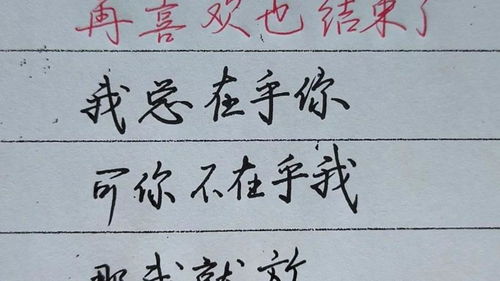 再喜欢也结束了
我总在乎你
可你不在乎我
那我就放